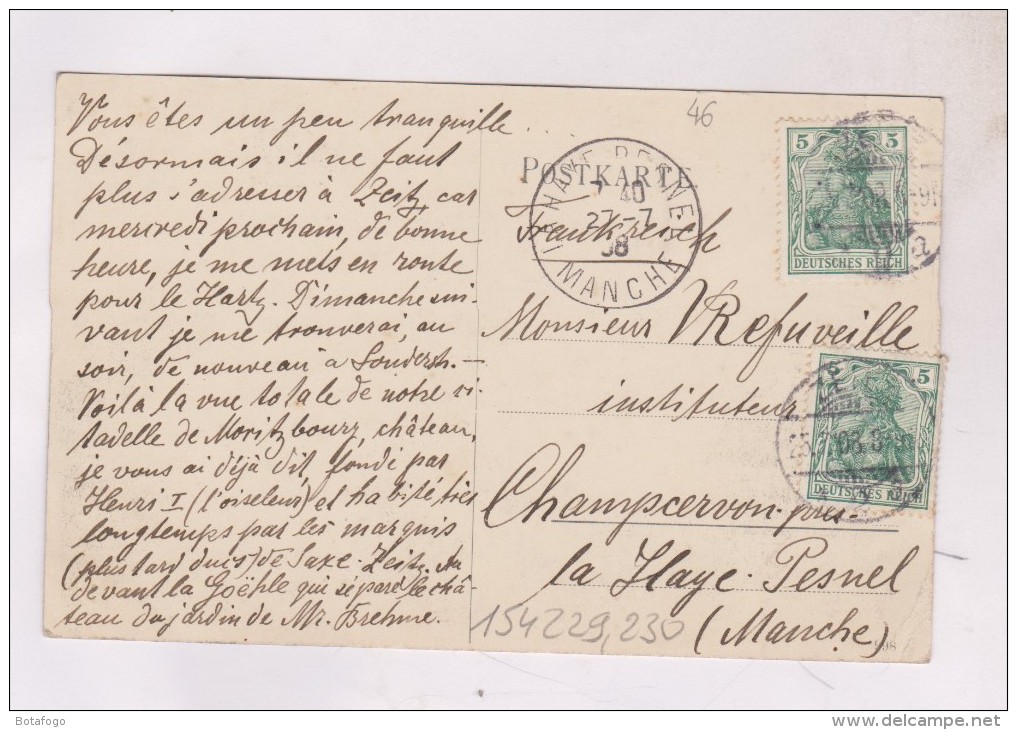 Vous êtes un peu tranquille...
Désormais il ne faut
plus s'adresser à Zeitz, car
mercredi prochain, de bonne
heure, je me mets en route
pour le Hartz. Dimanche sui-
vant je me trouverai, au
soir, de nouveau à Sondersh.—
Voilà la vue totale de notre ci-
tadelle de Moritzbourg, château,
je vous ai déjà dit, fondé par
Henri I (l'oiseleur) et habité très
longtemps par les marquis
(plus tard ducs) de Saxe-Zeitz. Au
devant la Goëhle qui sépare le châ-
teau du jardin de Mr. Brehme.
46
POSTKARTE
Frankreich
LA HAYE-PESNEL
7 40
27-7
08
MANCHE
5 5
DEUTSCHES REICH
Monsieur Refuveille
instituteur
5
08.8-9
DEUTSCHES REICH
Champcervon près
la Haye-Pesnel
(Manche)
154229,230
98
Botafogo
delcampe.net